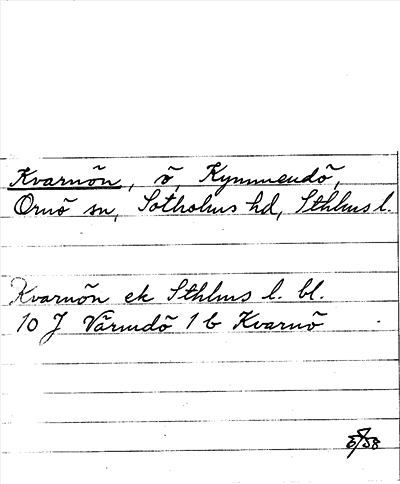 Kvarnön, ö, Kymmendö,
Ornö sn, Sotholms hd, Sthlms l.
Kvarnön ek Sthlms l. bl.
10 J Värmdö 1 b Kvarnö